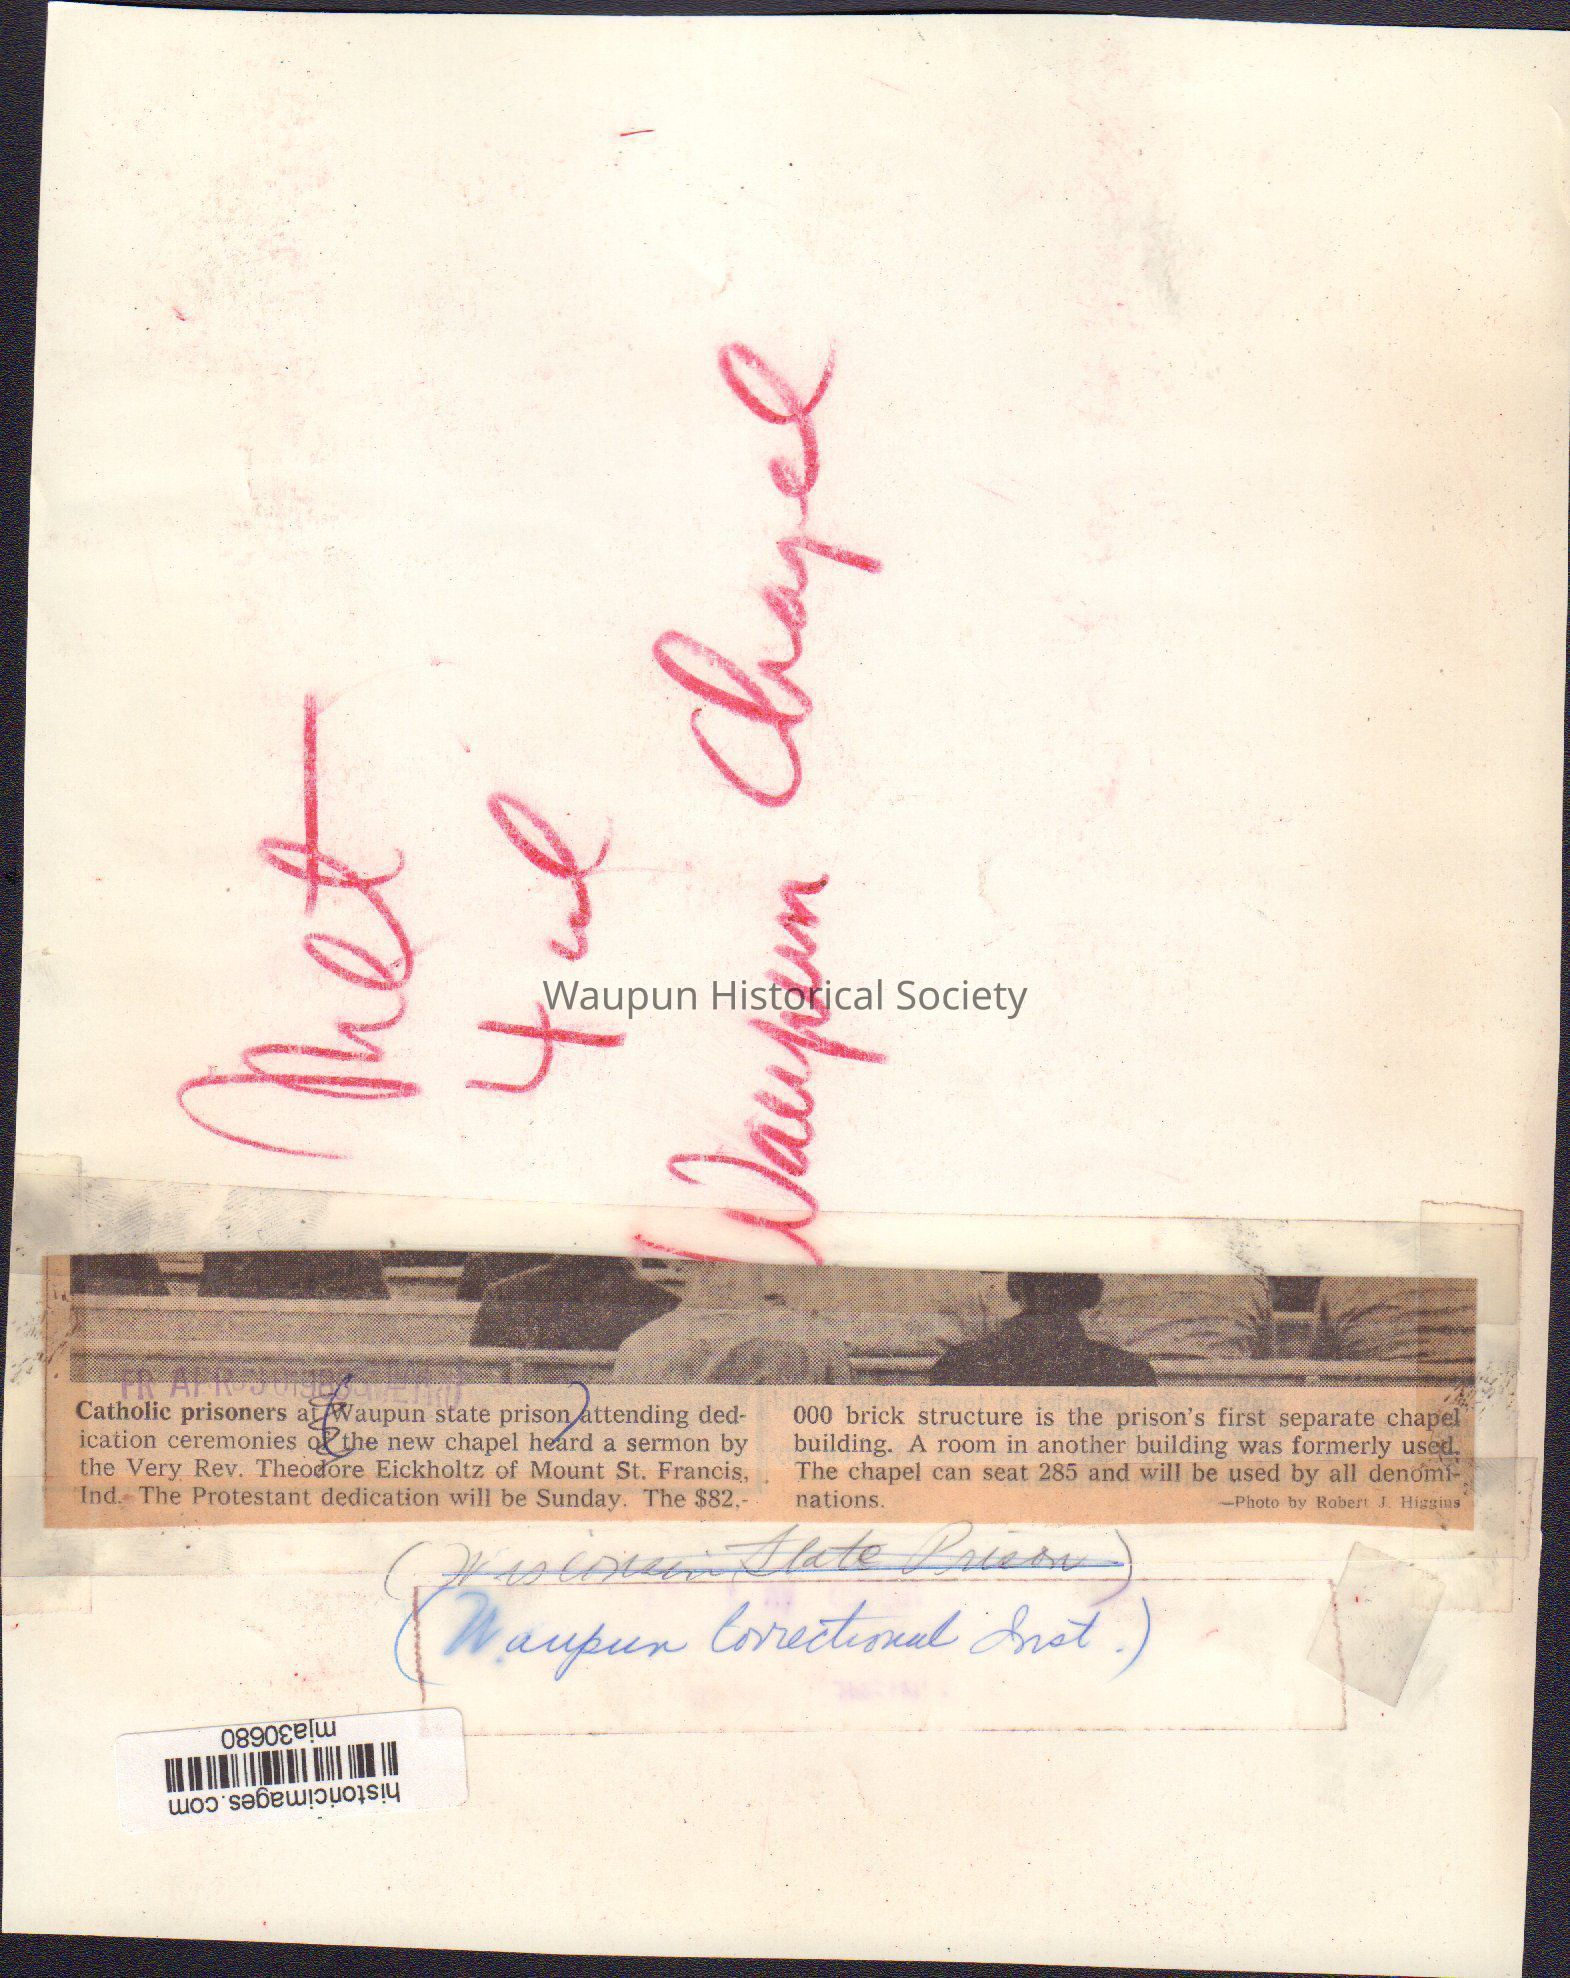 Met
4 col
Waupun Chapel
Waupun Historical Society
Catholic prisoners at Waupun state prison attending ded-
ication ceremonies of the new chapel heard a sermon by
the Very Rev. Theodore Eickholtz of Mount St. Francis,
Ind. The Protestant dedication will be Sunday. The $82,-
000 brick structure is the prison's first separate chapel
building. A room in another building was formerly used.
The chapel can seat 285 and will be used by all denomi-
nations.
—Photo by Robert J. Higgins
(Wisconsin State Prison)
(Waupun Correctional Inst.)
mja30680
historicimages.com